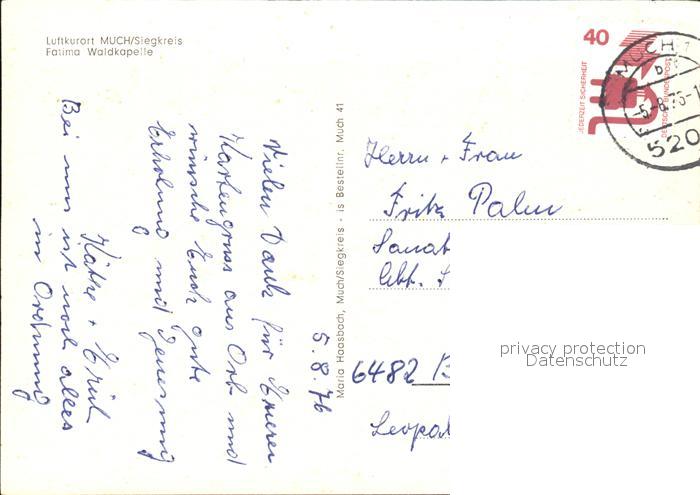 Luftkurort MUCH/Siegkreis
Fatima Waldkapelle
5.8.76
Vielen Dank für Eueren
Kartengruss aus Orb und
wünsche Euch gute
Erholung und Genesung
Käthe + Erich
Bei uns ist noch alles
in Ordnung
Maria Haasbach, Much/Siegkreis - is Bestellnr. Much 41
40
JEDERZEIT SICHERHEIT
DEUTSCHE BUNDESPOST
MUCH
520
Herrn + Frau
Fritz Palm
Sanat
Abt.
6482 B
Leopol
privacy protection
Datenschutz